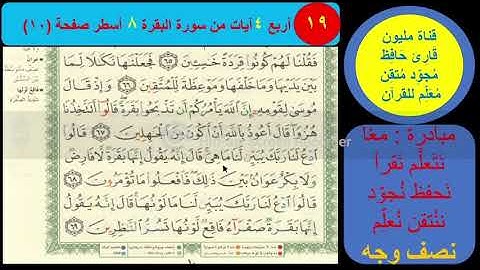 ١٩
أربع ٤ آيات من سورة البقرة ٨ أسطر صفحة (١٠)
فَقُلْنَا لَهُمْ كُونُوا قِرَدَةً خَاسِئِينَ ٦٥ فَجَعَلْنَاهَا نَكَالًا لِمَا
بَيْنَ يَدَيْهَا وَمَا خَلْفَهَا وَمَوْعِظَةً لِلْمُتَّقِينَ ٦٦ وَإِذْ قَالَ
مُوسَى لِقَوْمِهِ إِنَّ اللَّهَ يَأْمُرُكُمْ أَنْ تَذْبَحُوا بَقَرَةً قَالُوا أَتَتَّخِذُنَا
هُزُوًا قَالَ أَعُوذُ بِاللَّهِ أَنْ أَكُونَ مِنَ الْجَاهِلِينَ ٦٧ قَالُوا
ادْعُ لَنَا رَبَّكَ يُبَيِّنْ لَنَا مَا هِيَ قَالَ إِنَّهُ يَقُولُ إِنَّهَا بَقَرَةٌ لَا فَارِضٌ
وَلَا بِكْرٌ عَوَانٌ بَيْنَ ذَلِكَ فَافْعَلُوا مَا تُؤْمَرُونَ ٦٨ قَالُوا
ادْعُ لَنَا رَبَّكَ يُبَيِّنْ لَنَا مَا لَوْنُهَا قَالَ إِنَّهُ يَقُولُ
إِنَّهَا بَقَرَةٌ صَفْرَاءُ فَاقِعٌ لَوْنُهَا تَسُرُّ النَّاظِرِينَ ٦٩
قناة مليون
قارئ حافظ
مُجوّد مُتقن
مُعلّم للقرآن
مبادرة : معًا
نَتَعلّم نَقرأ
نَحفظ نُجوّد
نُتقن نُعلّم
نصف وجه